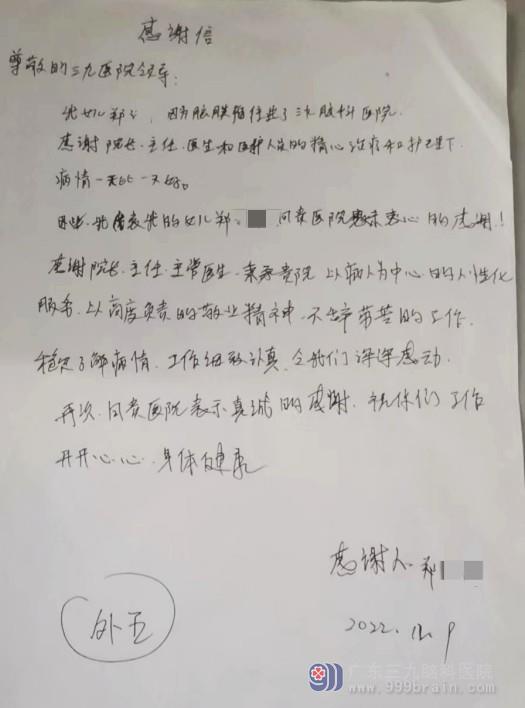 感谢信
尊敬的三九医院领导:
我女儿郑 因为脑膜瘤住进了三九脑科医院.
感谢院长.主任.医生和医护人员的精心治疗和护理下.
病情一天比一天好。
因此.我 我的女儿郑. 向贵医院表示衷心的感谢.!
感谢院长.主任.主管医生. 贵院以病人为中心的人性化
服务.以高度负责的敬业精神.不辞劳苦的工作.
了解病情.工作细致认真.令我们深深感动.
再次.向贵医院表示真诚的感谢.祝你们工作
开开心心.身体健康
感谢人.郑
2022.12.9
外五
广东三九脑科医院
www.999brain.com